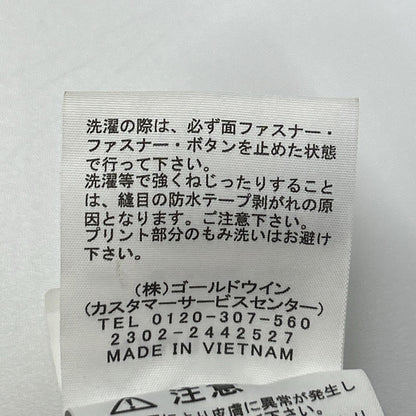 洗濯の際は、必ず面ファスナー・
ファスナー・ボタンを止めた状態
で行って下さい。
洗濯等で強くねじったりすること
は、縫目の防水テープ剥がれの原
因となります。ご注意下さい。
プリント部分のもみ洗いはお避け
下さい。
(株)ゴールドウイン
(カスタマーサービスセンター)
TEL 0120-307-560
2302-2442527
MADE IN VIETNAM
注意
により皮膚に異常が発生し